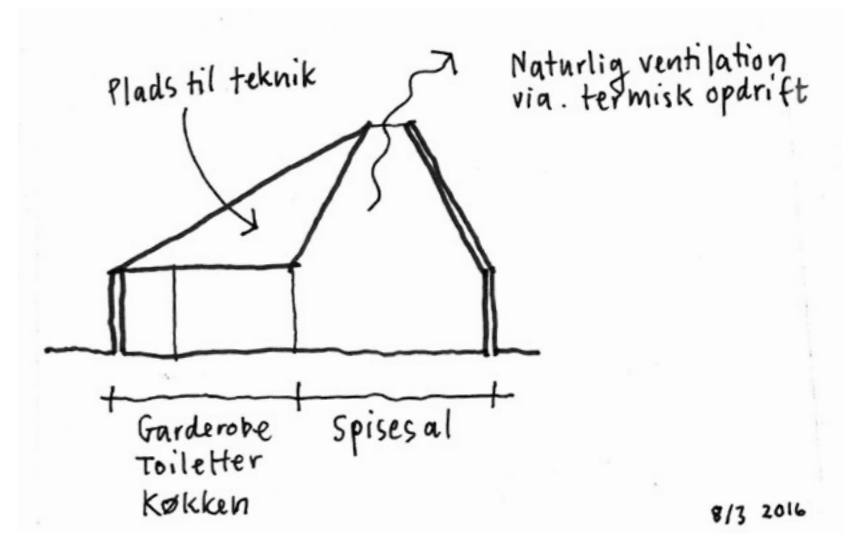 Plads til teknik
Naturlig ventilation
via. termisk opdrift
Garderobe
Toiletter
Køkken
Spisesal
8/3 2016